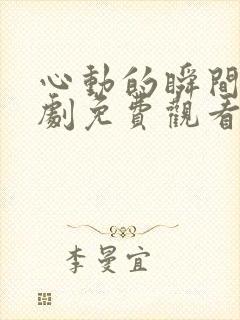 心動的瞬間
劇免費觀看
李曼宜